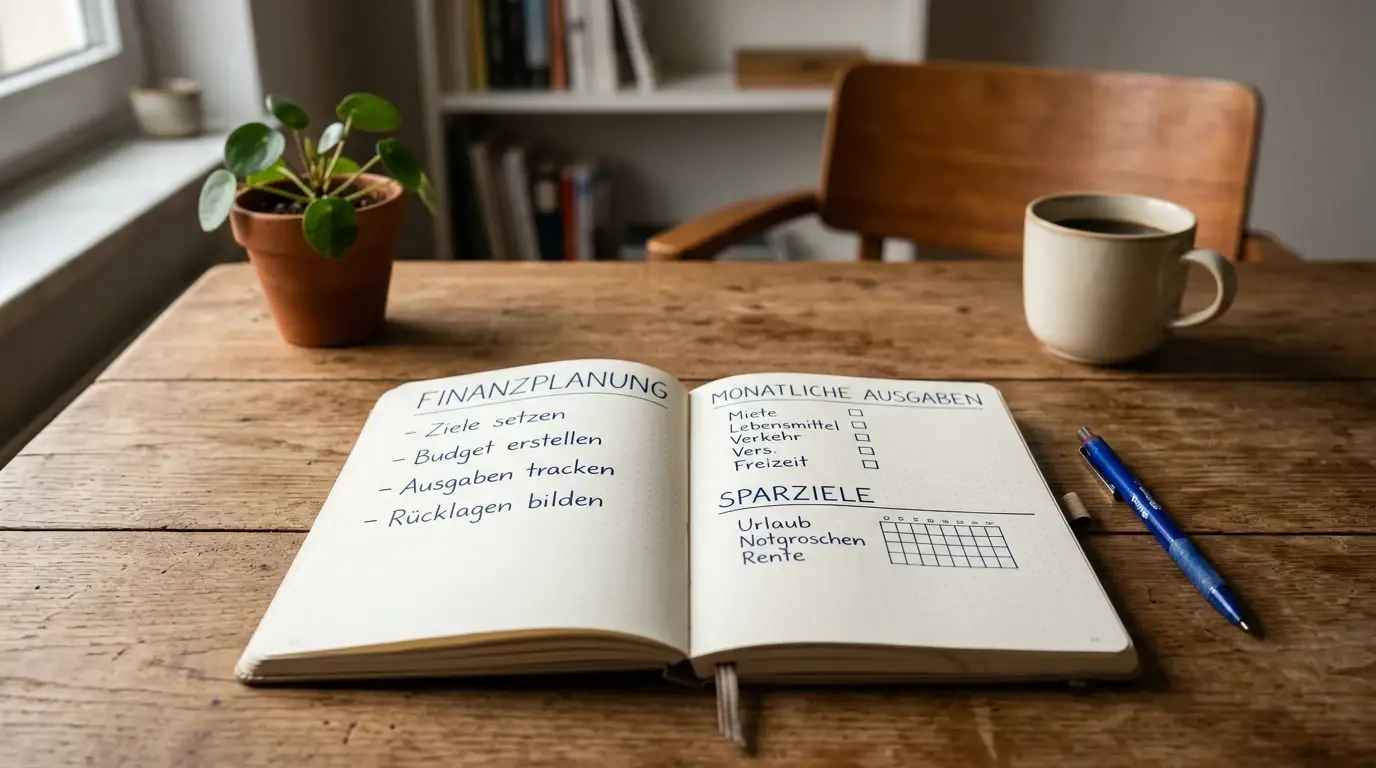 FINANZPLANUNG
- Ziele setzen
- Budget erstellen
- Ausgaben tracken
- Rücklagen bilden
MONATLICHE AUSGABEN
Miete
Lebensmittel
Verkehr
Vers.
Freizeit
SPARZIELE
Urlaub
Notgroschen
Rente